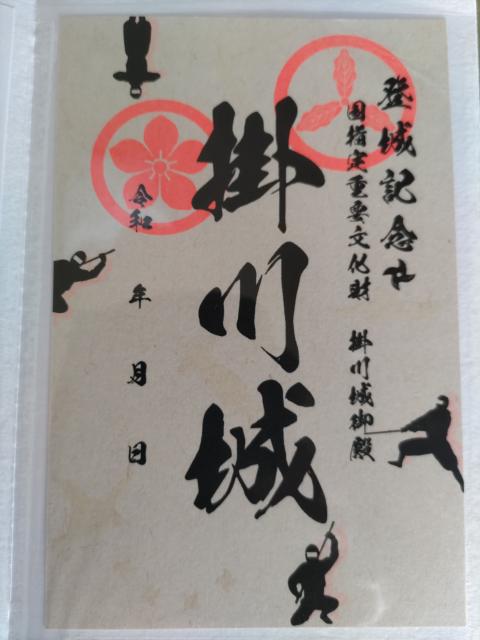 登城記念
国指定重要文化財 掛川城御殿
掛川城
令和 年 月 日